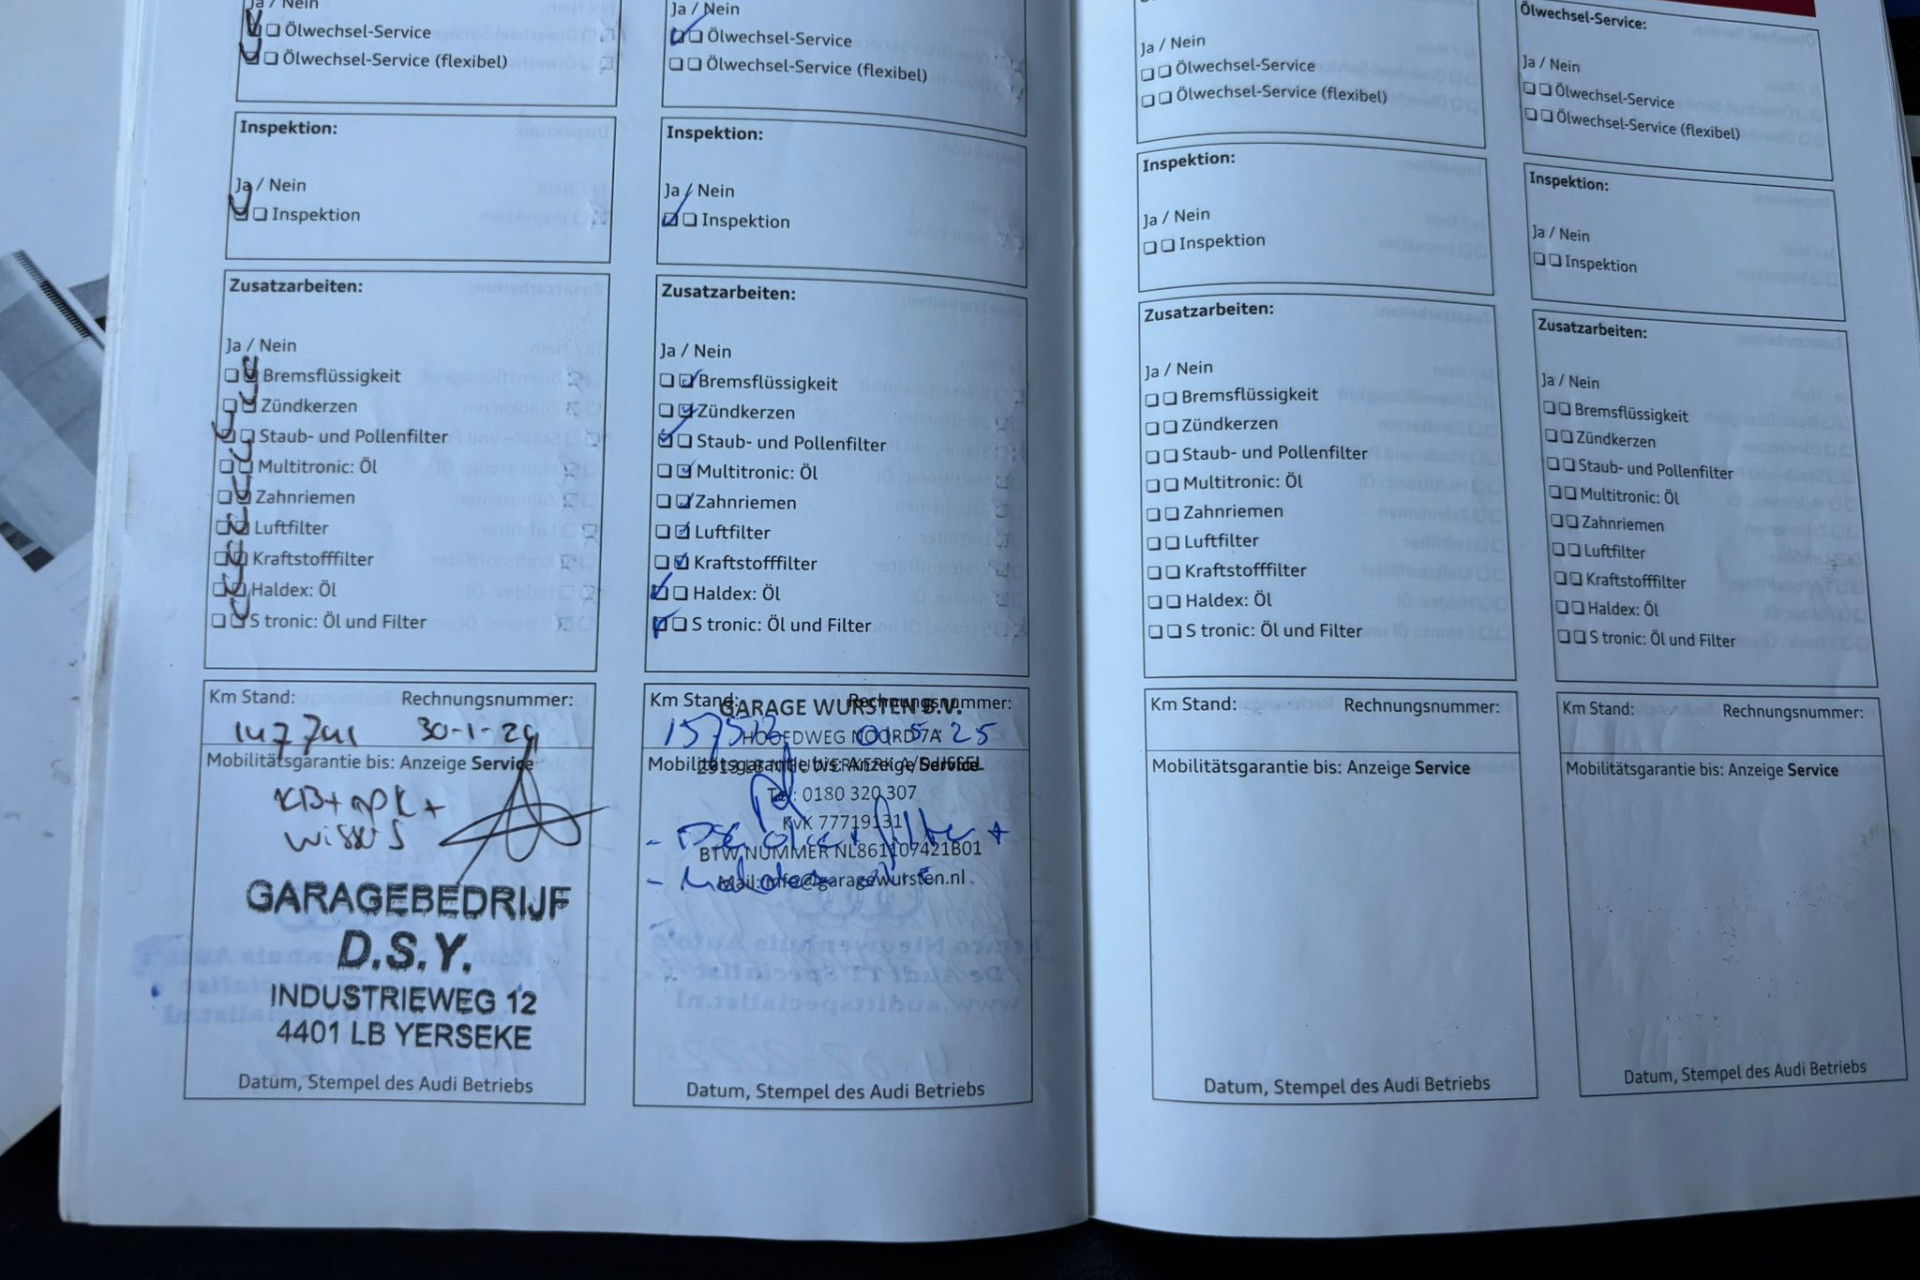 Ja / Nein
Ölwechsel-Service
Ölwechsel-Service (flexibel)
Inspektion:
Ja / Nein
Inspektion
Zusatzarbeiten:
Ja / Nein
Bremsflüssigkeit
Zündkerzen
Staub- und Pollenfilter
Multitronic: Öl
Zahnriemen
Luftfilter
Kraftstofffilter
Haldex: Öl
S tronic: Öl und Filter
Km Stand: Rechnungsnummer:
30-1-24
Mobilitätsgarantie bis: Anzeige Service
GARAGEBEDRIJF
D.S.Y.
INDUSTRIEWEG 12
4401 LB YERSEKE
Datum, Stempel des Audi Betriebs
Ja / Nein
Ölwechsel-Service
Ölwechsel-Service (flexibel)
Inspektion:
Ja / Nein
Inspektion
Zusatzarbeiten:
Ja / Nein
Bremsflüssigkeit
Zündkerzen
Staub- und Pollenfilter
Multitronic: Öl
Zahnriemen
Luftfilter
Kraftstofffilter
Haldex: Öl
S tronic: Öl und Filter
Km Stand: Rechnungsnummer:
GARAGE WURSTEN B.V.
HOOFDWEG NOORD 7A
Mobilitätsgarantie bis: Anzeige Service
Tel: 0180 320 307
KvK 77719131
BTW NUMMER NL861107421B01
Mail: info@garagewursten.nl
Datum, Stempel des Audi Betriebs
Ja / Nein
Ölwechsel-Service
Ölwechsel-Service (flexibel)
Inspektion:
Ja / Nein
Inspektion
Zusatzarbeiten:
Ja / Nein
Bremsflüssigkeit
Zündkerzen
Staub- und Pollenfilter
Multitronic: Öl
Zahnriemen
Luftfilter
Kraftstofffilter
Haldex: Öl
S tronic: Öl und Filter
Km Stand: Rechnungsnummer:
Mobilitätsgarantie bis: Anzeige Service
Datum, Stempel des Audi Betriebs
Ölwechsel-Service:
Ja / Nein
Ölwechsel-Service
Ölwechsel-Service (flexibel)
Inspektion:
Ja / Nein
Inspektion
Zusatzarbeiten:
Ja / Nein
Bremsflüssigkeit
Zündkerzen
Staub- und Pollenfilter
Multitronic: Öl
Zahnriemen
Luftfilter
Kraftstofffilter
Haldex: Öl
S tronic: Öl und Filter
Km Stand: Rechnungsnummer:
Mobilitätsgarantie bis: Anzeige Service
Datum, Stempel des Audi Betriebs